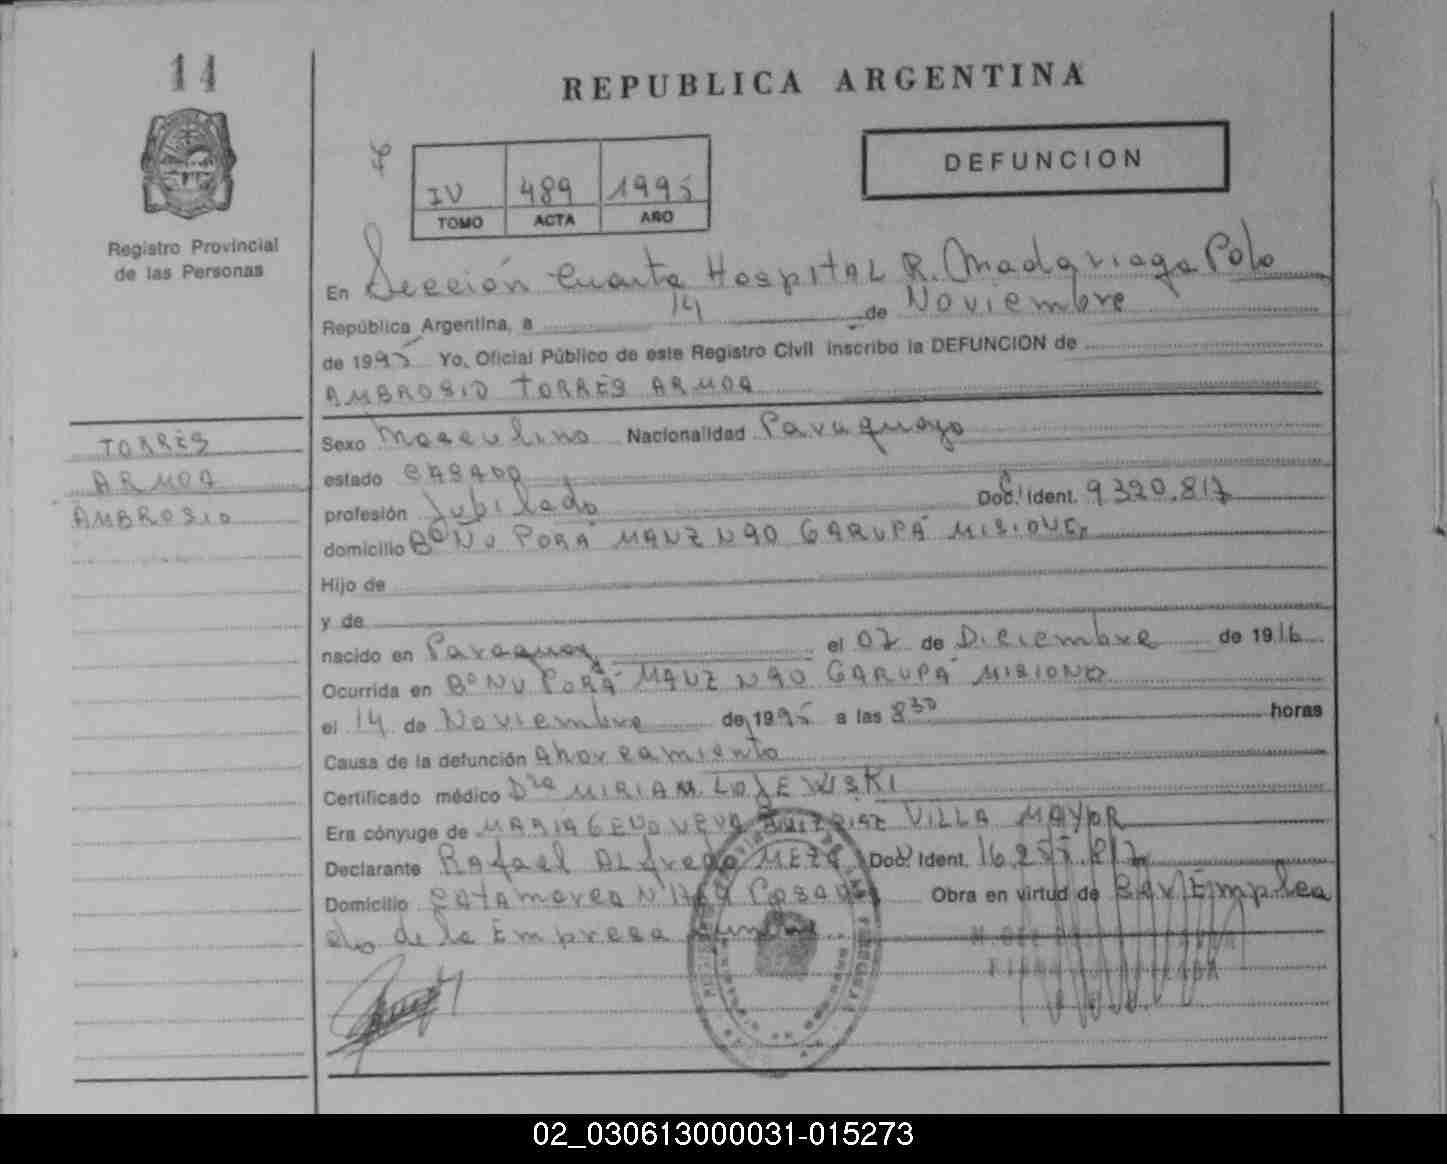 11
REPUBLICA ARGENTINA
DEFUNCION
IV 489 1995
TOMO ACTA AÑO
Registro Provincial
de las Personas
En Sección Cuarta Hospital R. Madariaga
República Argentina, a 14 de Noviembre
de 1995 Yo, Oficial Público de este Registro Civil inscribo la DEFUNCION de
AMBROSIO TORRES ARMOA
TORRES
ARMOA
AMBROSIO
Sexo Masculino Nacionalidad Paraguayo
estado CASADO
profesión Jubilado Doc. Ident. 9320.817
domicilio Bº ÑU PORÁ MANZ N90 GARUPÁ MISIONES
Hijo de
y de
nacido en Paraguay el 07 de Diciembre de 1916
Ocurrida en Bº ÑU PORÁ MANZ N90 GARUPÁ MISIONES
el 14 de Noviembre de 1995 a las 8 30 horas
Causa de la defunción Ahorcamiento
Certificado médico Dra MIRIAM LOJEWSKI
Era cónyuge de MARIA GENOVEVA VILLA MAYOR
Declarante Rafael Alfredo MEZA Doc. Ident. 16.255.817
Domicilio Catamarca Posadas Obra en virtud de Emplea
do de la Empresa
02_030613000031-015273